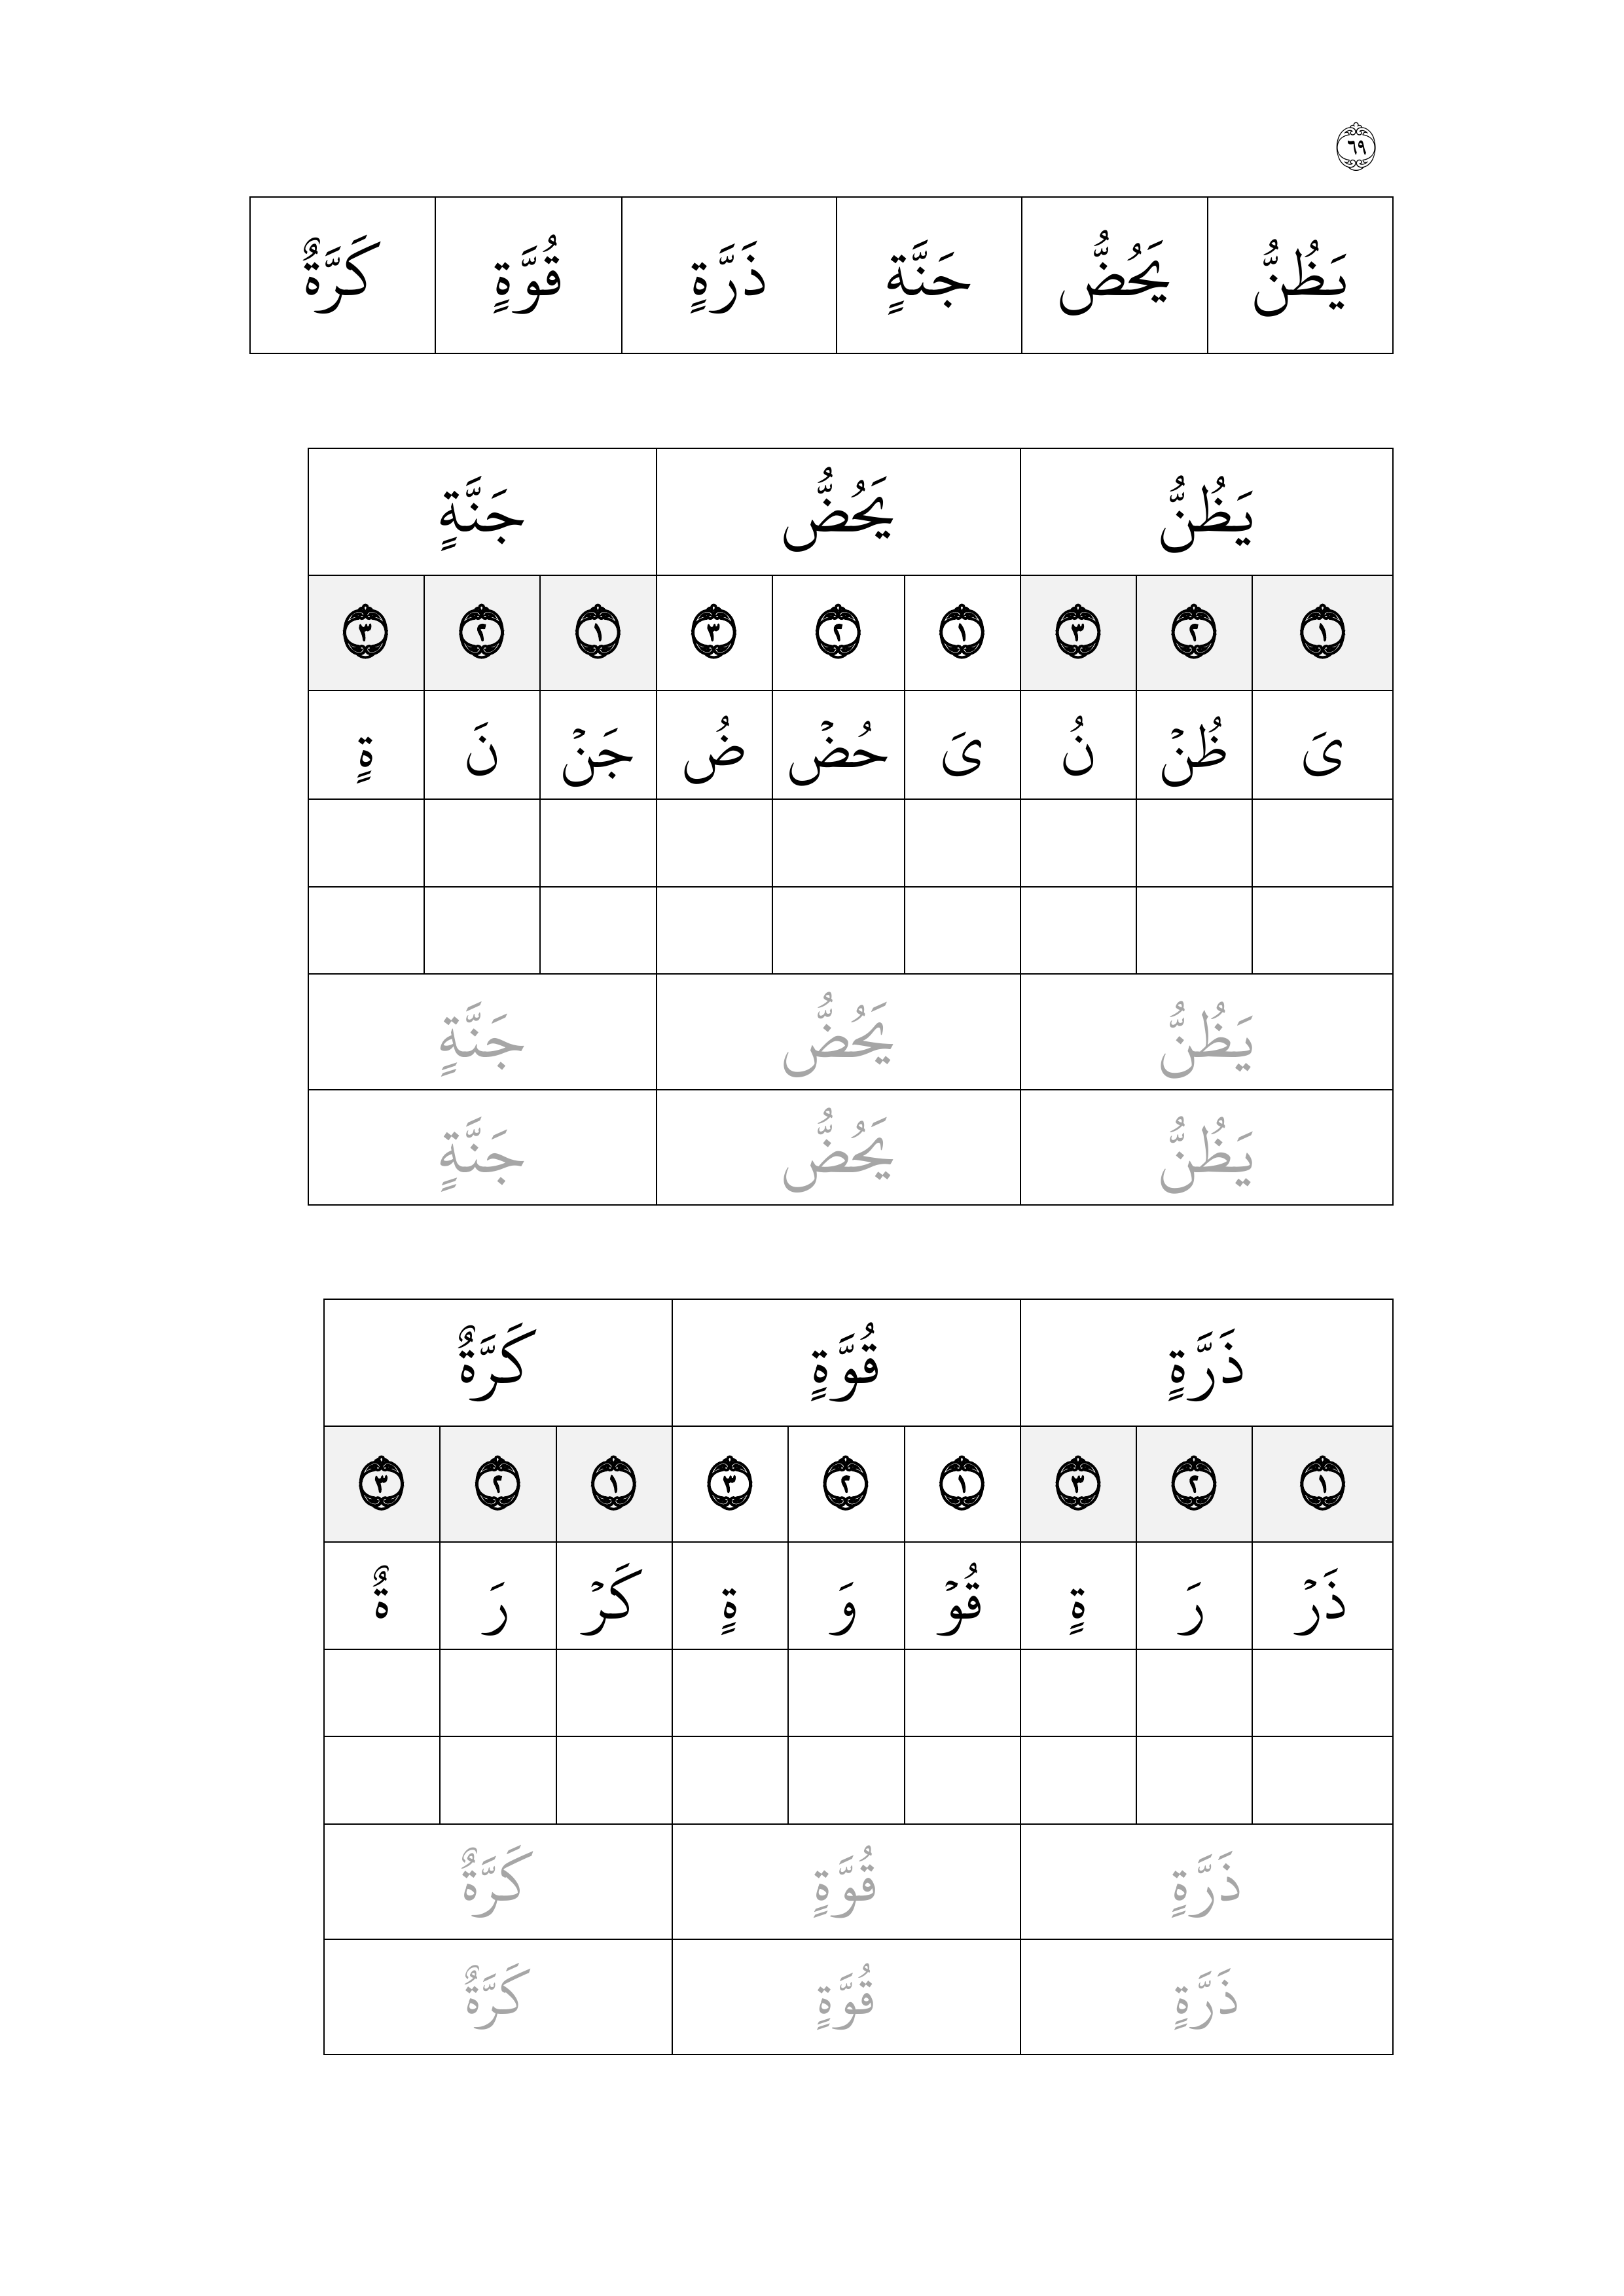 ٦٩
يَظُنُّ يَحُضُّ جَنَّةٍ ذَرَّةٍ قُوَّةٍ كَرَّةٌ
يَظُنُّ يَحُضُّ جَنَّةٍ
١ ٢ ٣ ١ ٢ ٣ ١ ٢ ٣
ىَ ظُنۡ نُ ىَ حُضۡ ضُ جَنۡ نَ ةٍ
يَظُنُّ يَحُضُّ جَنَّةٍ
يَظُنُّ يَحُضُّ جَنَّةٍ
ذَرَّةٍ قُوَّةٍ كَرَّةٌ
١ ٢ ٣ ١ ٢ ٣ ١ ٢ ٣
ذَرۡ رَ ةٍ قُوۡ وَ ةٍ كَرۡ رَ ةٌ
ذَرَّةٍ قُوَّةٍ كَرَّةٌ
ذَرَّةٍ قُوَّةٍ كَرَّةٌ